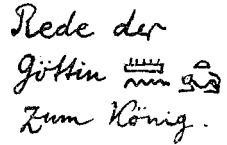 Rede der
Göttin 𓏠𓈖
zum König.